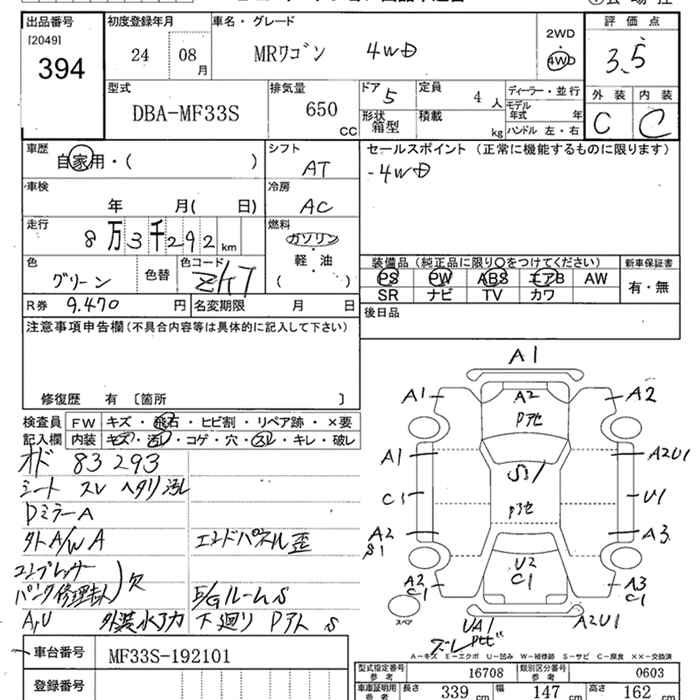 出品番号 初度登録年月 車名・グレード 2WD 評価点
[2049]
394 24 08 月 MRワゴン 4WD 4WD 3.5
型式 排気量 ドア 定員 ディーラー・並行 外装 内装
DBA-MF33S 650 CC 5 4人 モデル年式 年 C C
形状 箱型 積載 kg ハンドル 左・右
車歴 シフト セールスポイント (正常に機能するものに限ります)
自家用・( ) AT -4WD
車検 冷房
年 月( 日) AC
走行 燃料
8万3千292 km ガソリン
軽・油
( )
色 色替 色コード 装備品 (純正品に限り○をつけてください) 新車保証書
グリーン ZHJ PS PW ABS エアB AW 有・無
SR ナビ TV カワ
R券 9.470 円 名変期限 月 日 後日品
注意事項申告欄 (不具合内容等は具体的に記入して下さい)
修復歴 有 〔箇所 〕
検査員 FW キズ・飛石・ヒビ割・リペア跡・×要
記入欄 内装 キズ・汚レ・コゲ・穴・スレ・キレ・破レ
オド 83293
シート スレ ヘタリ 汚レ
DミラーA
外A/W A エンドパネル歪
コンプレッサー
パンク修理キット 欠 E/Gルーム S
A,U 外装水アカ 下廻り Pアト S
A1
A1 A2 A2
Pアセ
A1 A2U1
S1
C1 Pアセ U1
A2 S1 A3
U2
C1
A2 C1 A3 C1
スペア
UA1 A2U1
ズレ
A−キズ E−エクボ U−凹み W−補修跡 S−サビ C−腐食 ××−交換済
車台番号 MF33S-192101
型式指定番号 参考 16708 類別区分番号 参考 0603
登録番号
車庫証明用 参考 長さ 339 cm 幅 147 cm 高さ 162 cm